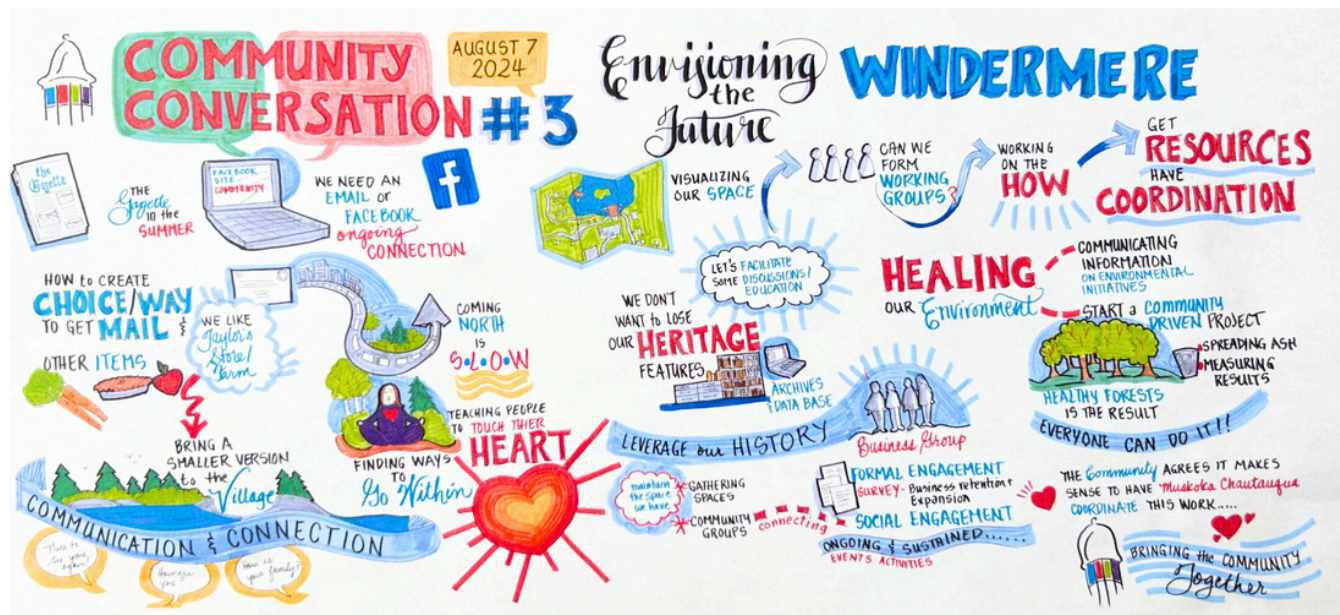 COMMUNITY
CONVERSATION #3
AUGUST 7
2024
Envisioning
the
Future
WINDERMERE
the
Gazette
THE
Gazette
in the
SUMMER
FACEBOOK
SITE
COMMUNITY
WE NEED AN
EMAIL or
FACEBOOK
ongoing
CONNECTION
f
VISUALIZING
OUR SPACE
CAN WE
FORM
WORKING
GROUPS?
WORKING
ON THE
HOW
GET
RESOURCES
HAVE
COORDINATION
HOW to CREATE
CHOICE/WAY
TO GET MAIL &
OTHER ITEMS
WE LIKE
Taylor's
Store/
Farm
BRING A
SMALLER VERSION
to the
Village
COMING
NORTH
IS
S·L·O·W
TEACHING PEOPLE
TO TOUCH THIER
HEART
FINDING WAYS
TO
Go Within
COMMUNICATION & CONNECTION
Nice to
see you
again
How are
you?
How is
your family?
LET'S FACILITATE
SOME DISCUSSIONS/
EDUCATION
WE DON'T
WANT to LOSE
OUR HERITAGE
FEATURES
ARCHIVES
& DATA BASE
LEVERAGE our HISTORY
Business Group
maintain
the space
we have
GATHERING
SPACES
COMMUNITY
GROUPS
connecting
FORMAL ENGAGEMENT
SURVEY - Business retention +
Expansion
SOCIAL ENGAGEMENT
ONGOING & SUSTAINED......
EVENTS ACTIVITIES
HEALING
OUR Environment
COMMUNICATING
INFORMATION
ON ENVIRONMENTAL
INITIATIVES
START a COMMUNITY
DRIVEN PROJECT
SPREADING ASH
MEASURING
RESULTS
HEALTHY FORESTS
IS THE RESULT
EVERYONE CAN DO IT!!
THE Community AGREES IT MAKES
SENSE TO HAVE Muskoka Chautauqua
COORDINATE THIS WORK.....
BRINGING the COMMUNITY
Together